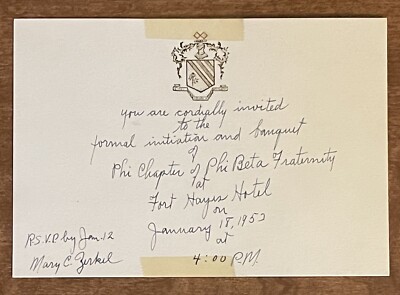 you are cordially invited
to the
formal initiation and banquet
of
Phi Chapter of Phi Beta Fraternity
at
Fort Hayes Hotel
on
January 18, 1953
at
4:00 P.M.
R.S.V.P. by Jan. 12
Mary C. Zerkel